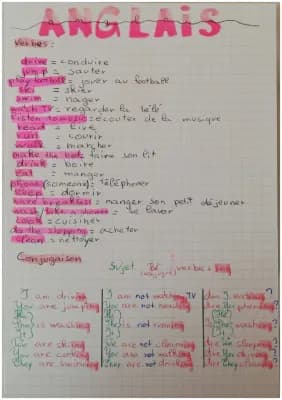 ANGLAIS
Verbes:
drive = conduire
jump = sauter
play football = jouer au football
ski = skier
swim = nager
watch TV = regarder la télé
listen to music = écouter de la musique
read = lire
run = courir
walk = marcher
make the bed = faire son lit
drink = boire
eat = manger
phone (someone) = téléphoner
sleep = dormir
have breakfast = manger son petit déjeuner
wash/take a shower = se laver
cook = cuisiner
do the shopping = acheter
clean = nettoyer
Conjugaison
Sujet verbe + ing
I am driving I am not watching TV
You are jumping You are not reading
is washing is not running
We are skiing We are not cleaning
You are cooking You are not walking
They are washing They are not drinking